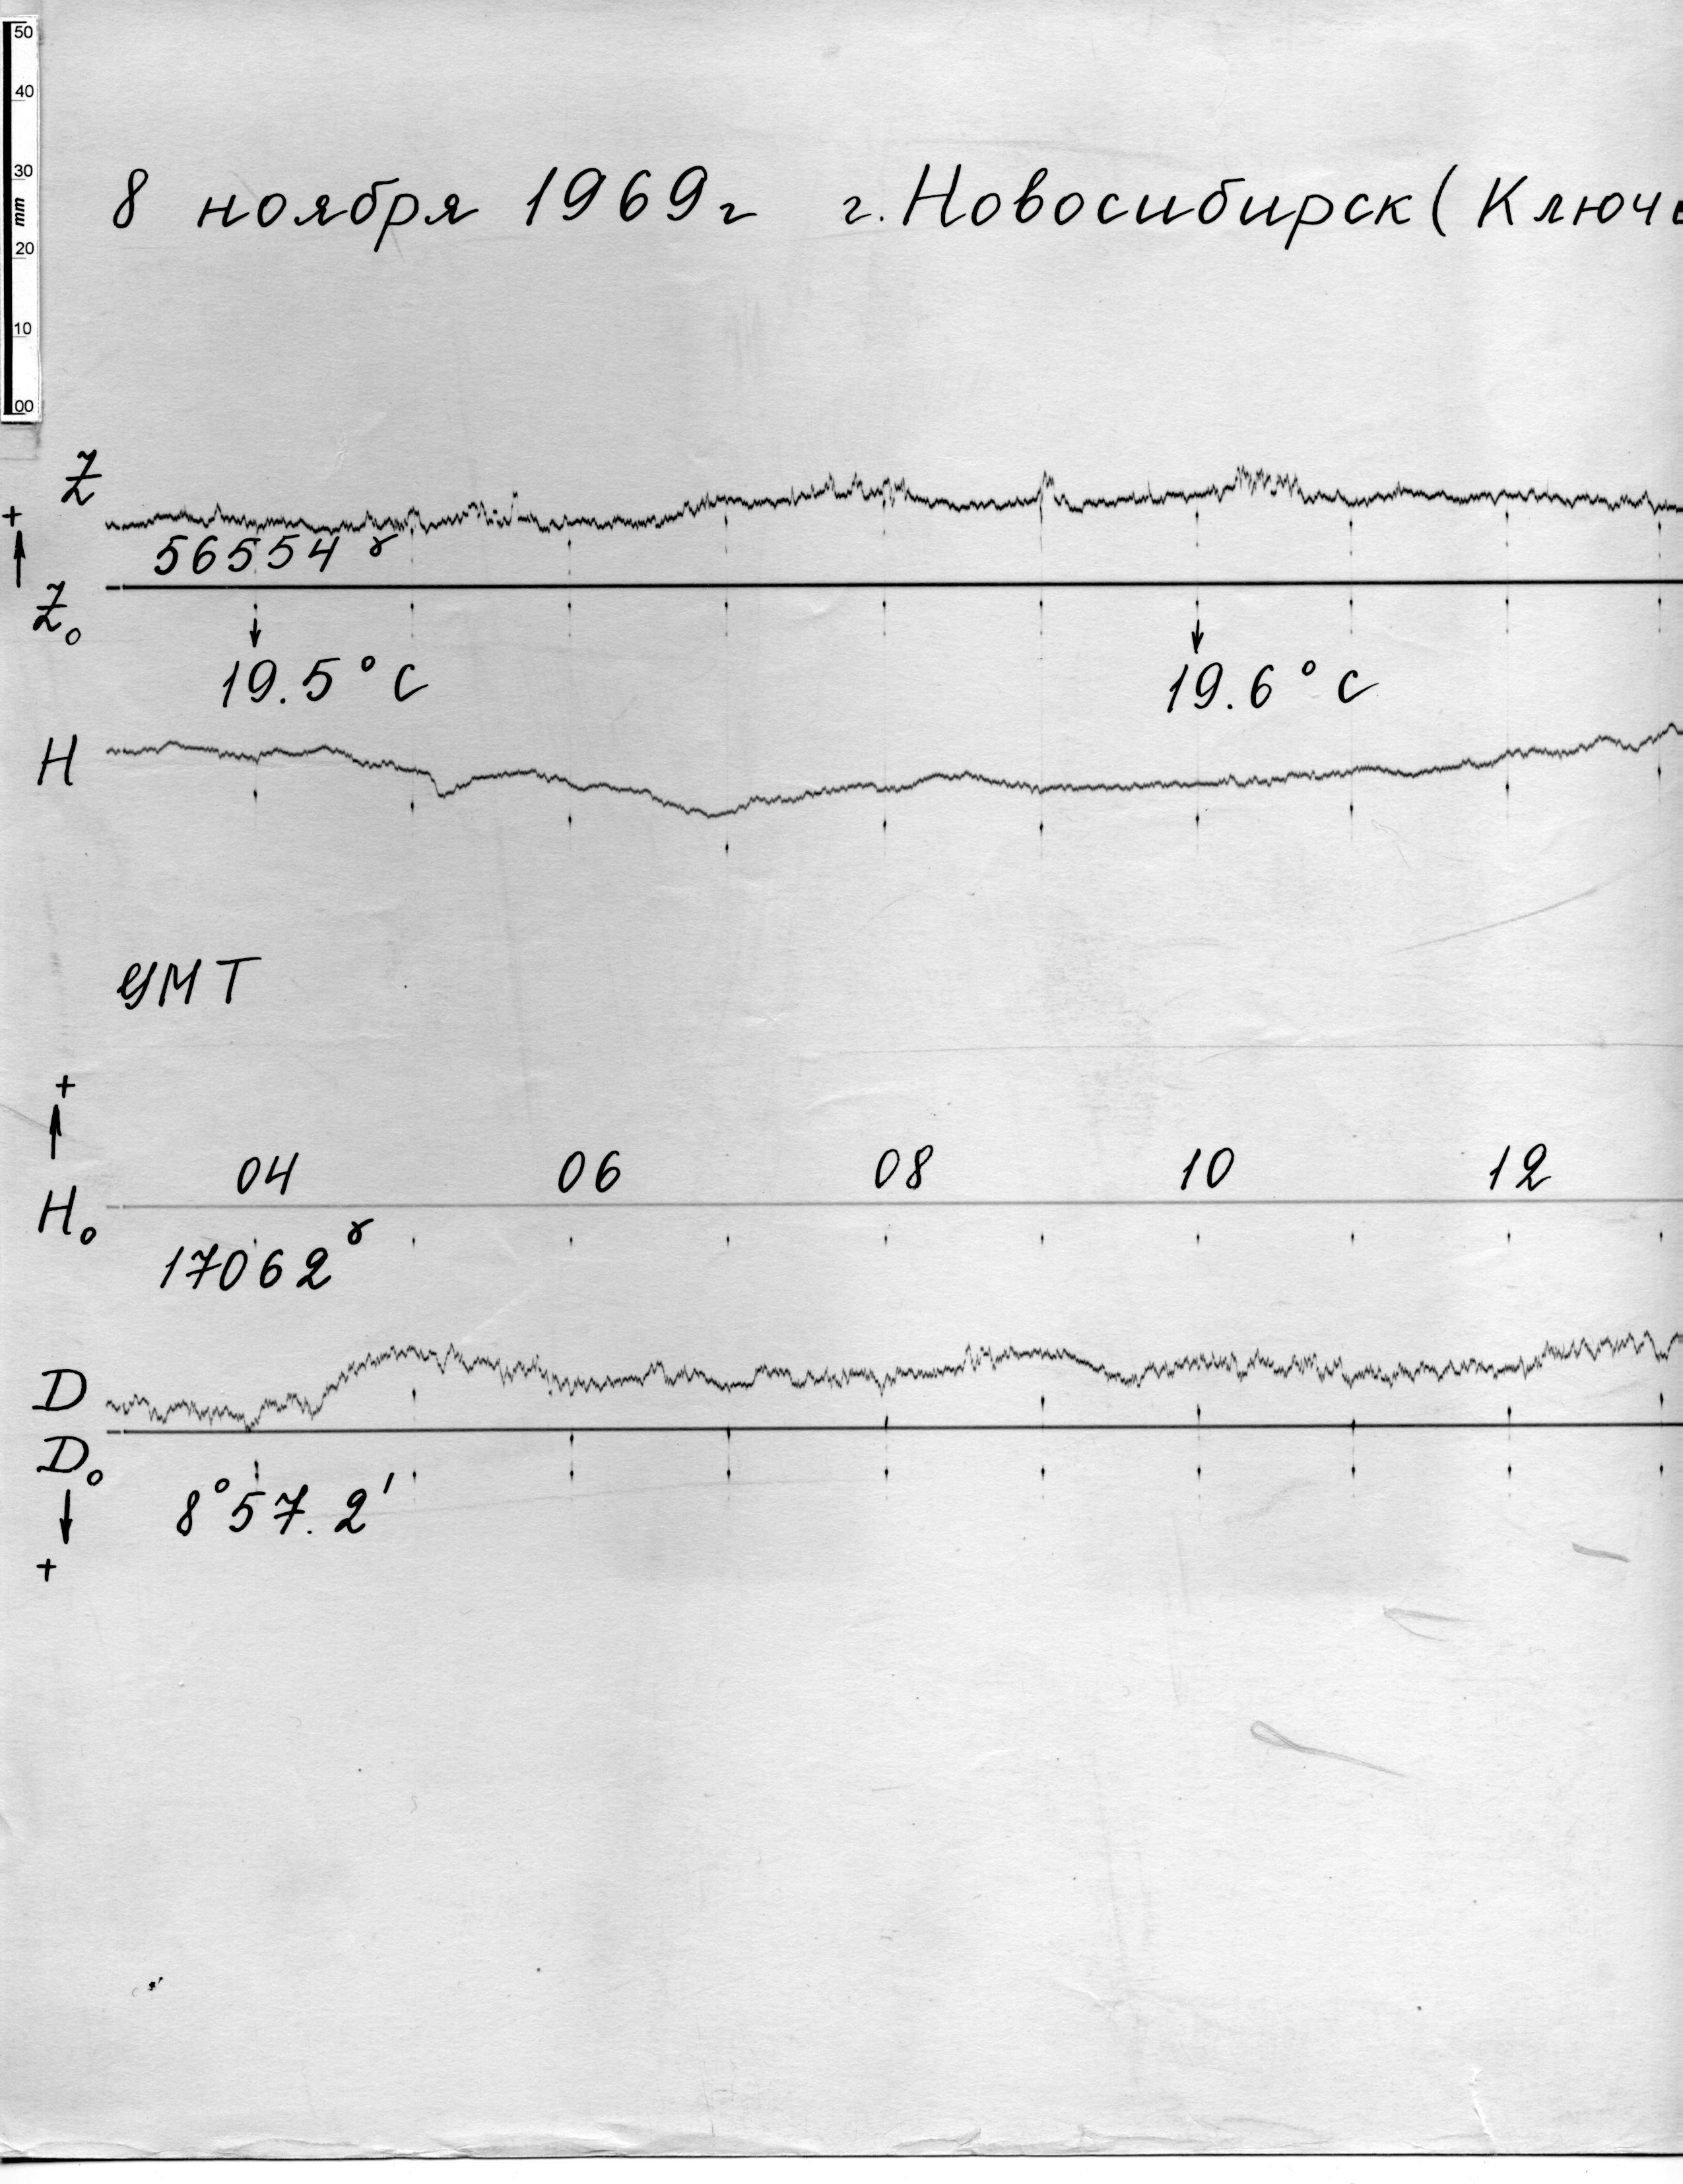 50
40
30
mm
20
10
00
8 ноября 1969г г. Новосибирск (Ключ
Z
+
56554 γ
Z₀
19.5°C 19.6°C
H
УМТ
+
04 06 08 10 12
H₀
17062 γ
D
D₀
8°57.2′
+